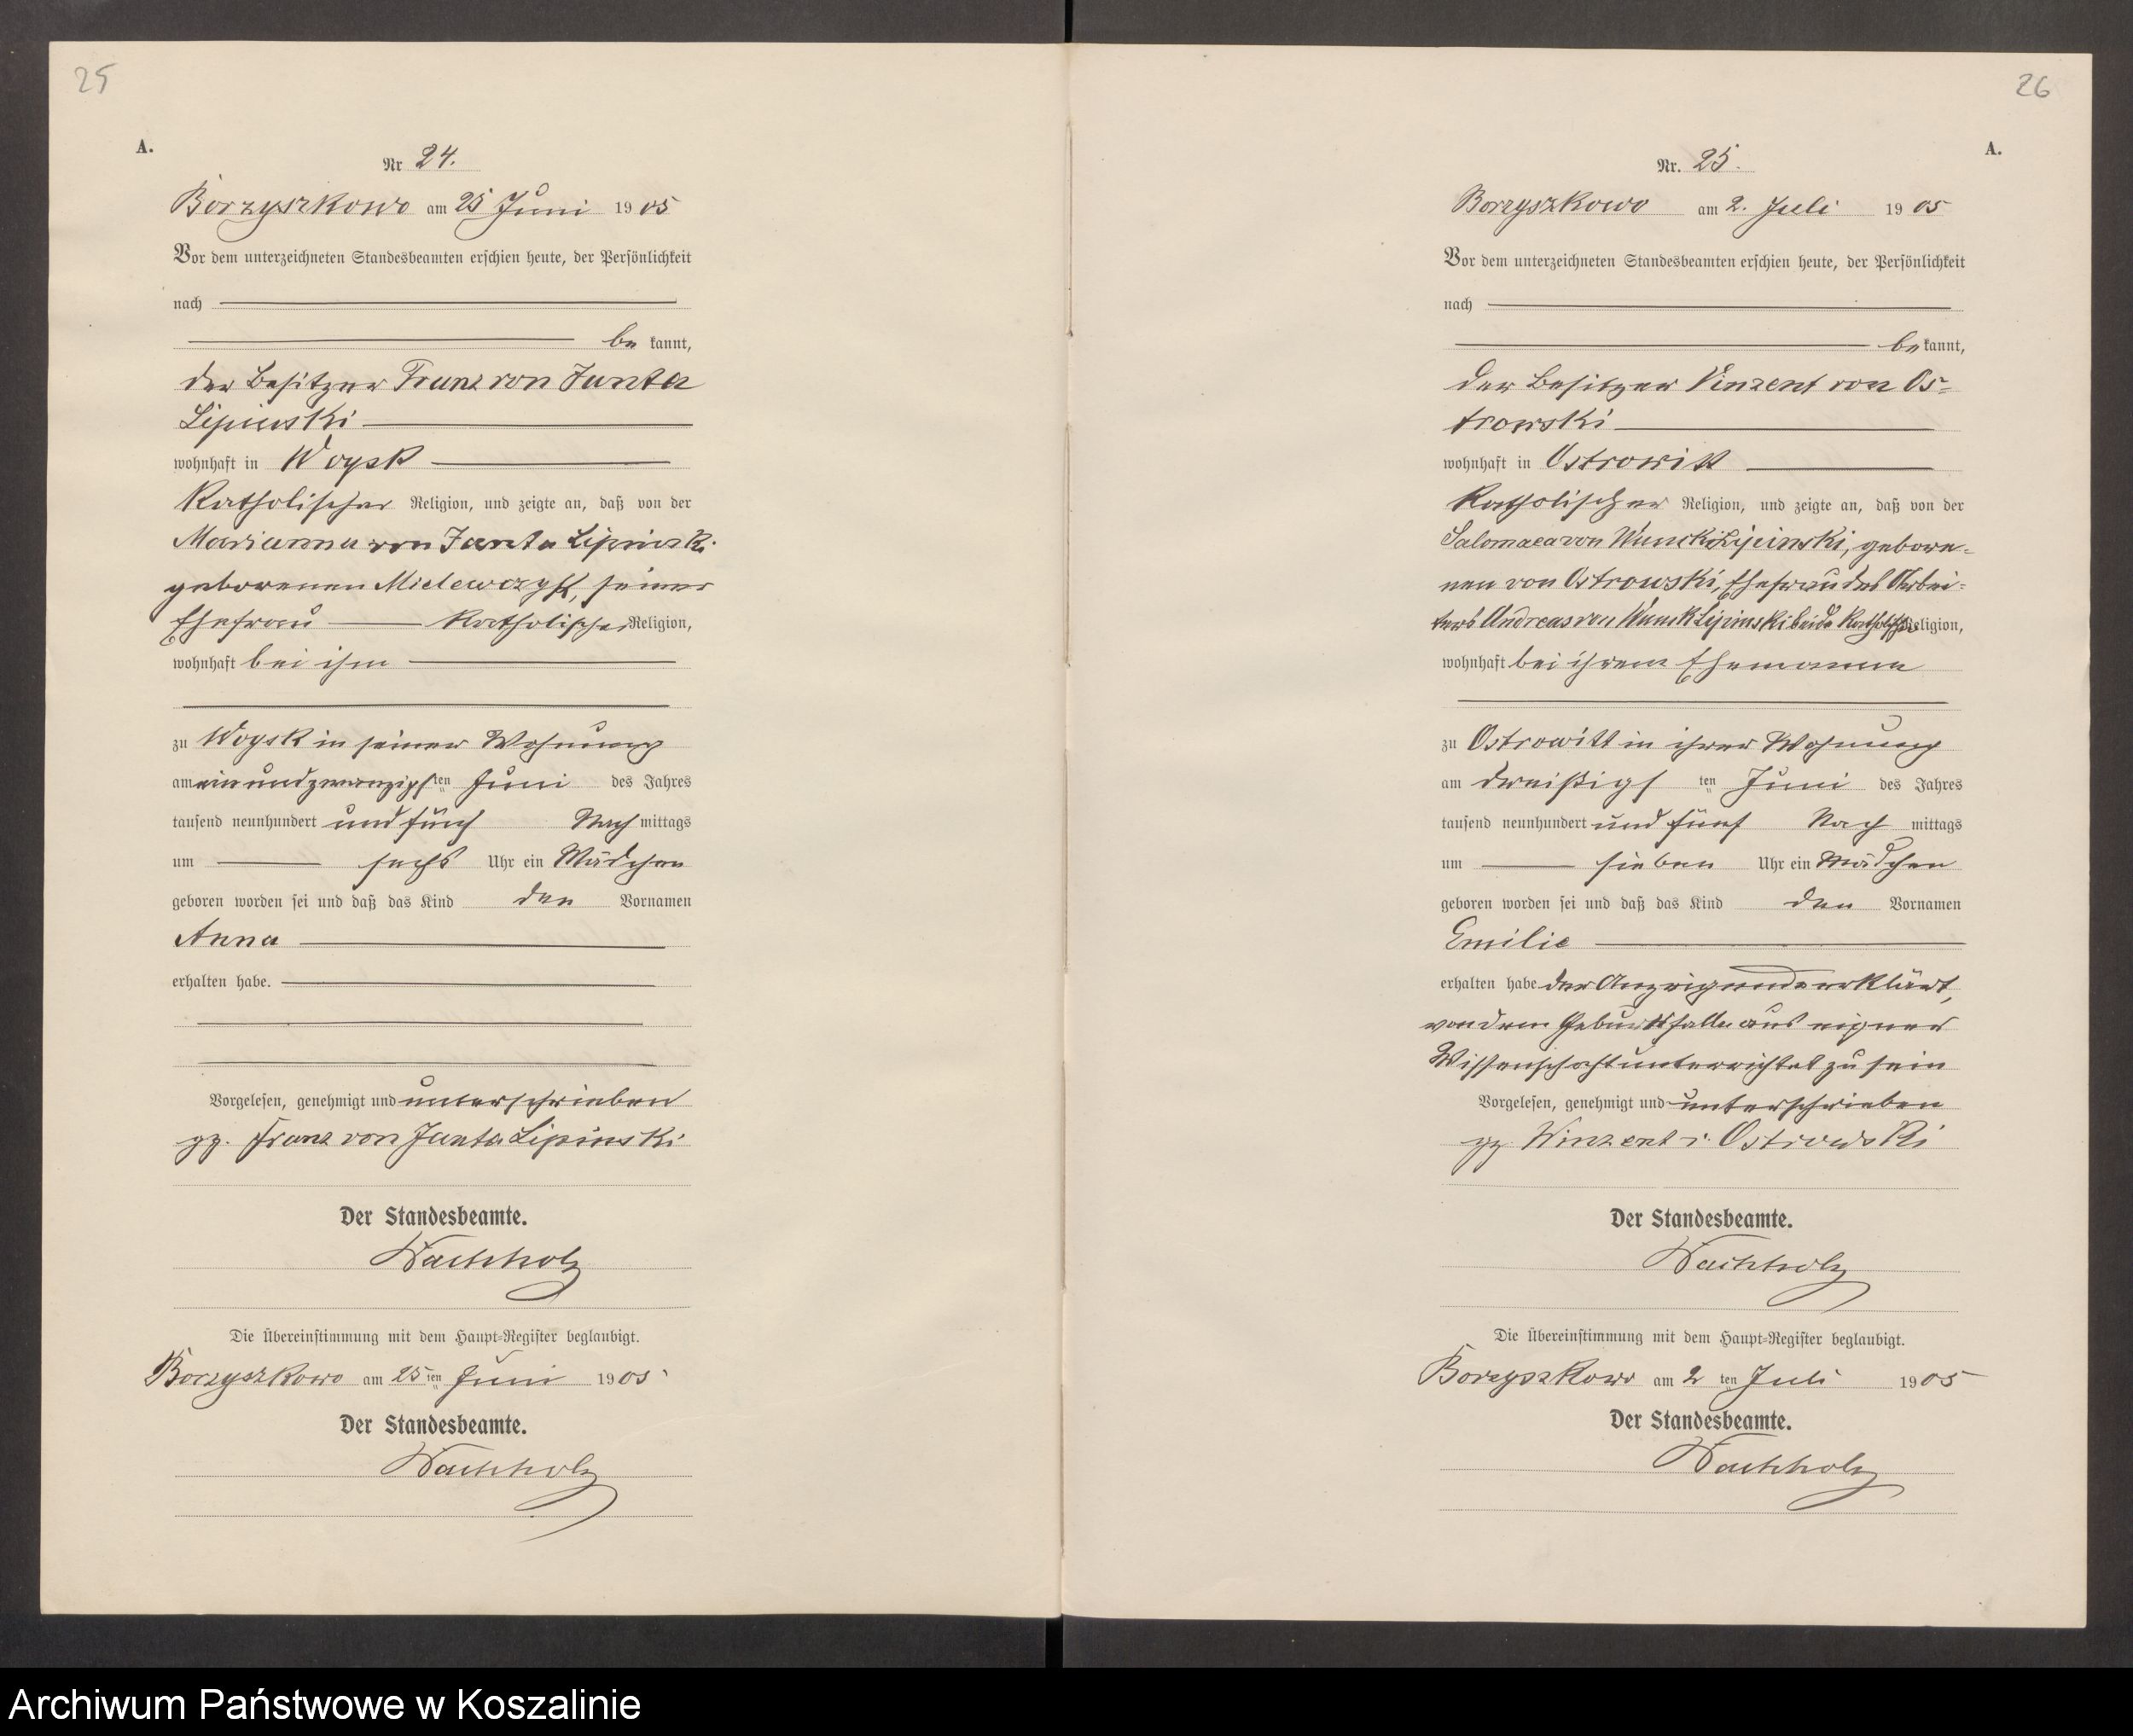 25
A.
Nr 24.
Borzyszkowo am 25 Juni 1905
Vor dem unterzeichneten Standesbeamten erschien heute, der Persönlichkeit
nach
be kannt,
der Besitzer Franz von Janta
Lipinski
wohnhaft in Woysk
katholischer Religion, und zeigte an, daß von der
Marianna von Janta Lipinski
geborenen Mielewczyk, seiner
Ehefrau katholischer Religion,
wohnhaft bei ihm
zu Woysk in seiner Wohnung
am einundzwanzigsten Juni des Jahres
tausend neunhundert und fünf Nach mittags
um sechs Uhr ein Mädchen
geboren worden sei und daß das Kind den Vornamen
Anna
erhalten habe.
Vorgelesen, genehmigt und unterschrieben
gz. Franz von Janta Lipinski
Der Standesbeamte.
Wachholz
Die Übereinstimmung mit dem Haupt-Register beglaubigt.
Borzyszkowo am 25 ten Juni 1905
Der Standesbeamte.
Wachholz
26
A.
Nr. 25.
Borzyszkowo am 2. Juli 1905
Vor dem unterzeichneten Standesbeamten erschien heute, der Persönlichkeit
nach
be kannt,
der Besitzer Vinzent von Os-
trowski
wohnhaft in Ostrowitt
katholischer Religion, und zeigte an, daß von der
Salomaea von Wnuck Lipinski, gebore-
nen von Ostrowski, Ehefrau des Arbei-
ters Andreas von Wnuk Lipinski beide katholischer Religion,
wohnhaft bei ihrem Ehemanne
zu Ostrowitt in ihrer Wohnung
am dreißigs ten Juni des Jahres
tausend neunhundert und fünf Nach mittags
um sieben Uhr ein Mädchen
geboren worden sei und daß das Kind den Vornamen
Emilie
erhalten habe der Anzeigende erklärt,
von dem Geburtsfalle aus eigner
Wissenschaft unterrichtet zu sein
Vorgelesen, genehmigt und unterschrieben
gz Winzent v. Ostrowski
Der Standesbeamte.
Wachholz
Die Übereinstimmung mit dem Haupt-Register beglaubigt.
Borzyszkowo am 2 ten Juli 1905
Der Standesbeamte.
Wachholz
Archiwum Państwowe w Koszalinie